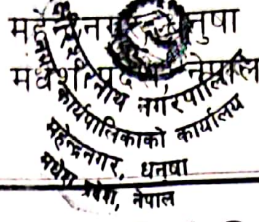 महेन्द्रनगर, धनुषा
मधेश प्रदेश, नेपाल
नगरपालिका
कार्यपालिकाको कार्यालय
महेन्द्रनगर, धनुषा
मधेश प्रदेश, नेपाल